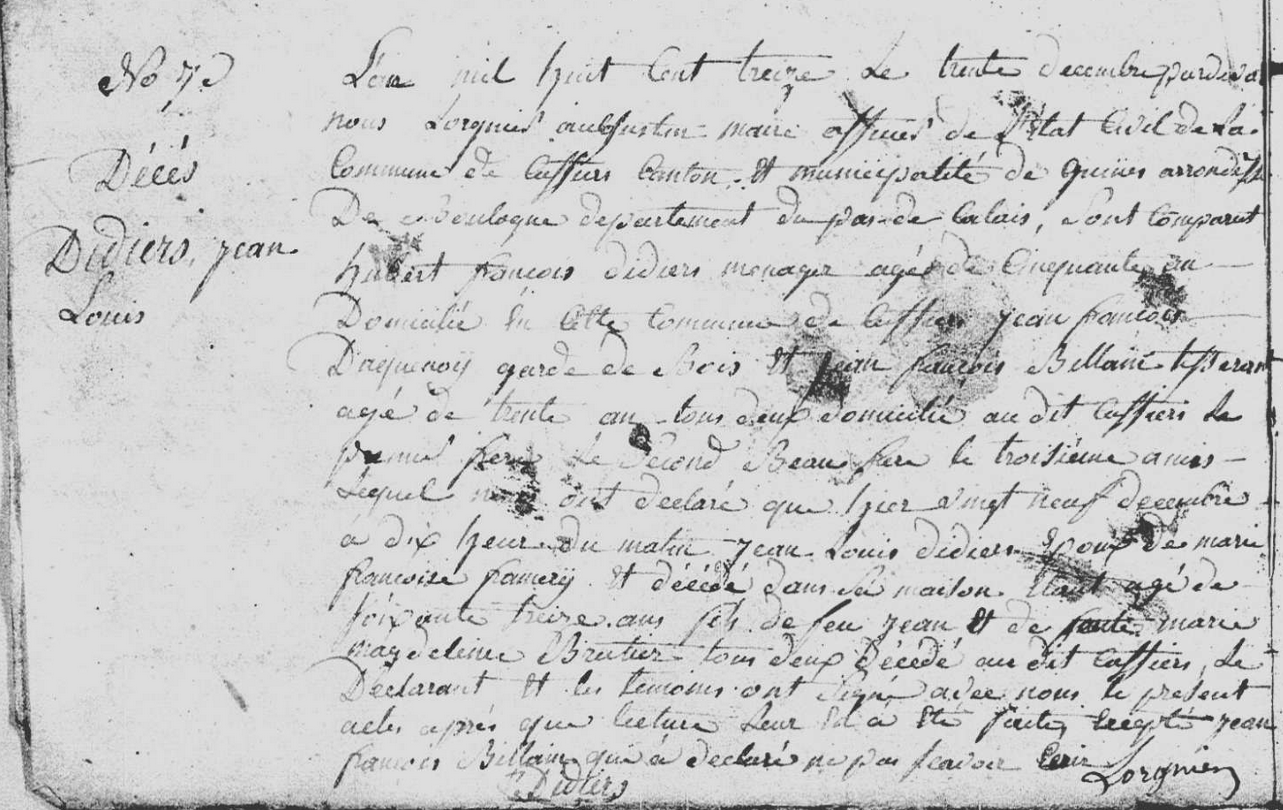 No 7e
Décés
Didiers, jean
Louis
L'an mil huit Cent treize Le trente decembre pardeva
nous Lorgnier aubustin maire officier de L'état Civil de La
Commune de Caffiers Canton Et municipalité de guines arrondiss
De Boulogne departement du pas de Calais, Sont Comparut
hubert francois didiers menager agé de Cinquante an
Domicilié En Cette Commune de Caffiers jean francois
Daquenoy garde de Bois Et jean francois Bellain tisseran
agé de trente an tous deux domicilié au dit Caffiers Le
premier frere Le Second Beau frere le troisiéme amis
Lequel nous ont declaré que hier vingt neuf decembre
á dix heure du matin jean Louis didiers Epoux de marie
francoise framery Et décédé dans Sa maison Etant agé de
soixante treize ans fils de feu jean Et de feute marie
magdeleine Brutier tous deux décédé au dit Caffiers, Le
Déclarant Et les temoins ont Signé avec nous le present
acte aprés que lecture Leur Et á Eté faite, Excepté jean
francois Bellain qui á declaré ne pas scavoir Ecrir
Didiers Lorgnier